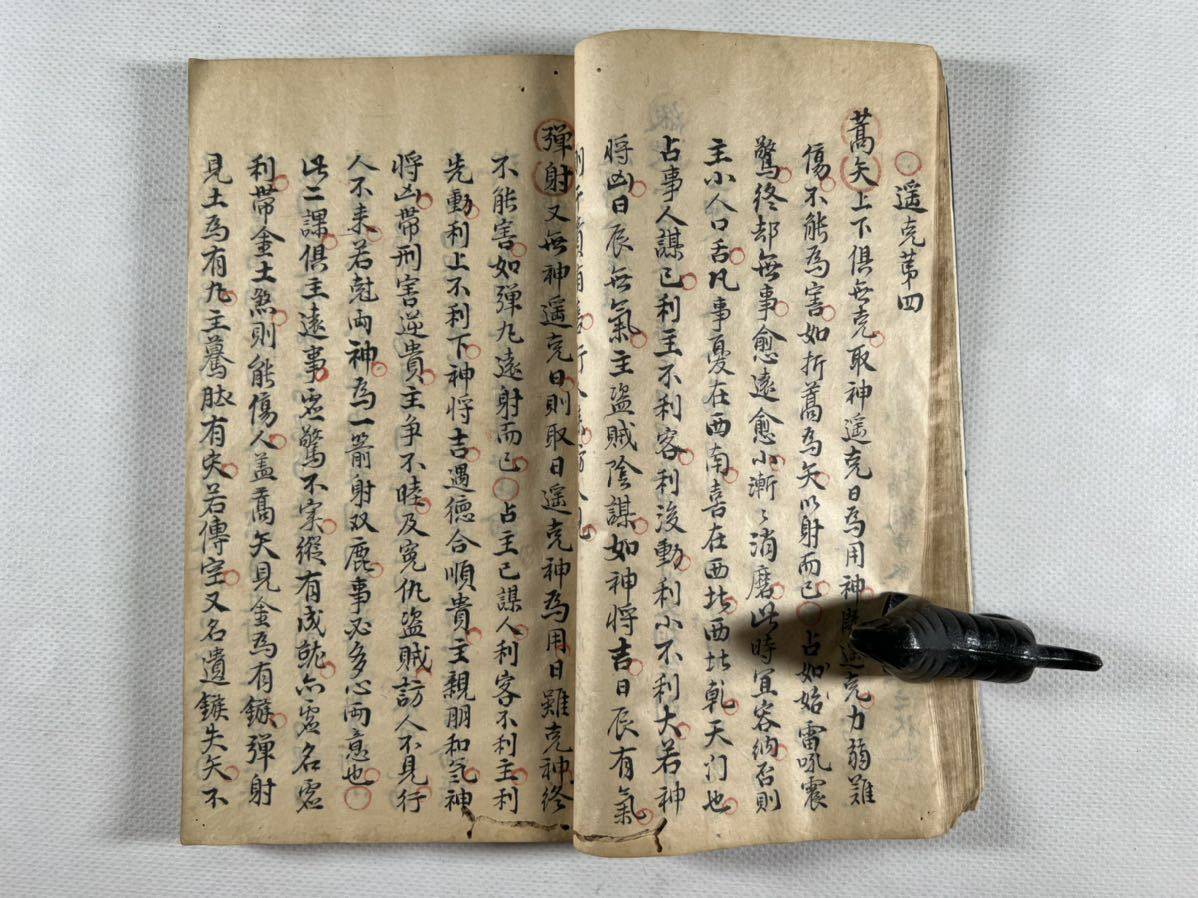 遥克第四
蒿矢上下俱無克取神遥克日為用神遥克力弱難
傷不能為害如折蒿為矢以射而已占如始雷吼震
驚終却無事愈遠愈小漸〻消磨此時宜容納否則
主小人口舌凡事憂在西南喜在西北西北乾天门也
占事人謀已利主不利客利後動利小不利大若神
将凶日辰無氣主盜賊陰謀如神将吉日辰有氣
彈射又無神遥克日則取日遥克神為用日雖克神終
不能害如彈丸遠射而已占主已謀人利客不利主利
先動利上不利下神将吉遇德合順貴主親朋和气神
将凶帶刑害逆貴主争不睦及寃仇盜賊訪人不見行
人不来若尅両神為一箭射双鹿事必多心両意也
此二課俱主遠事虚驚不实縱有成就亦虚名虚
利帶金土煞則能傷人盖蒿矢見金為有鏃彈射
見土為有丸主蓦肰有灾若傳空又名遺鏃失矢不